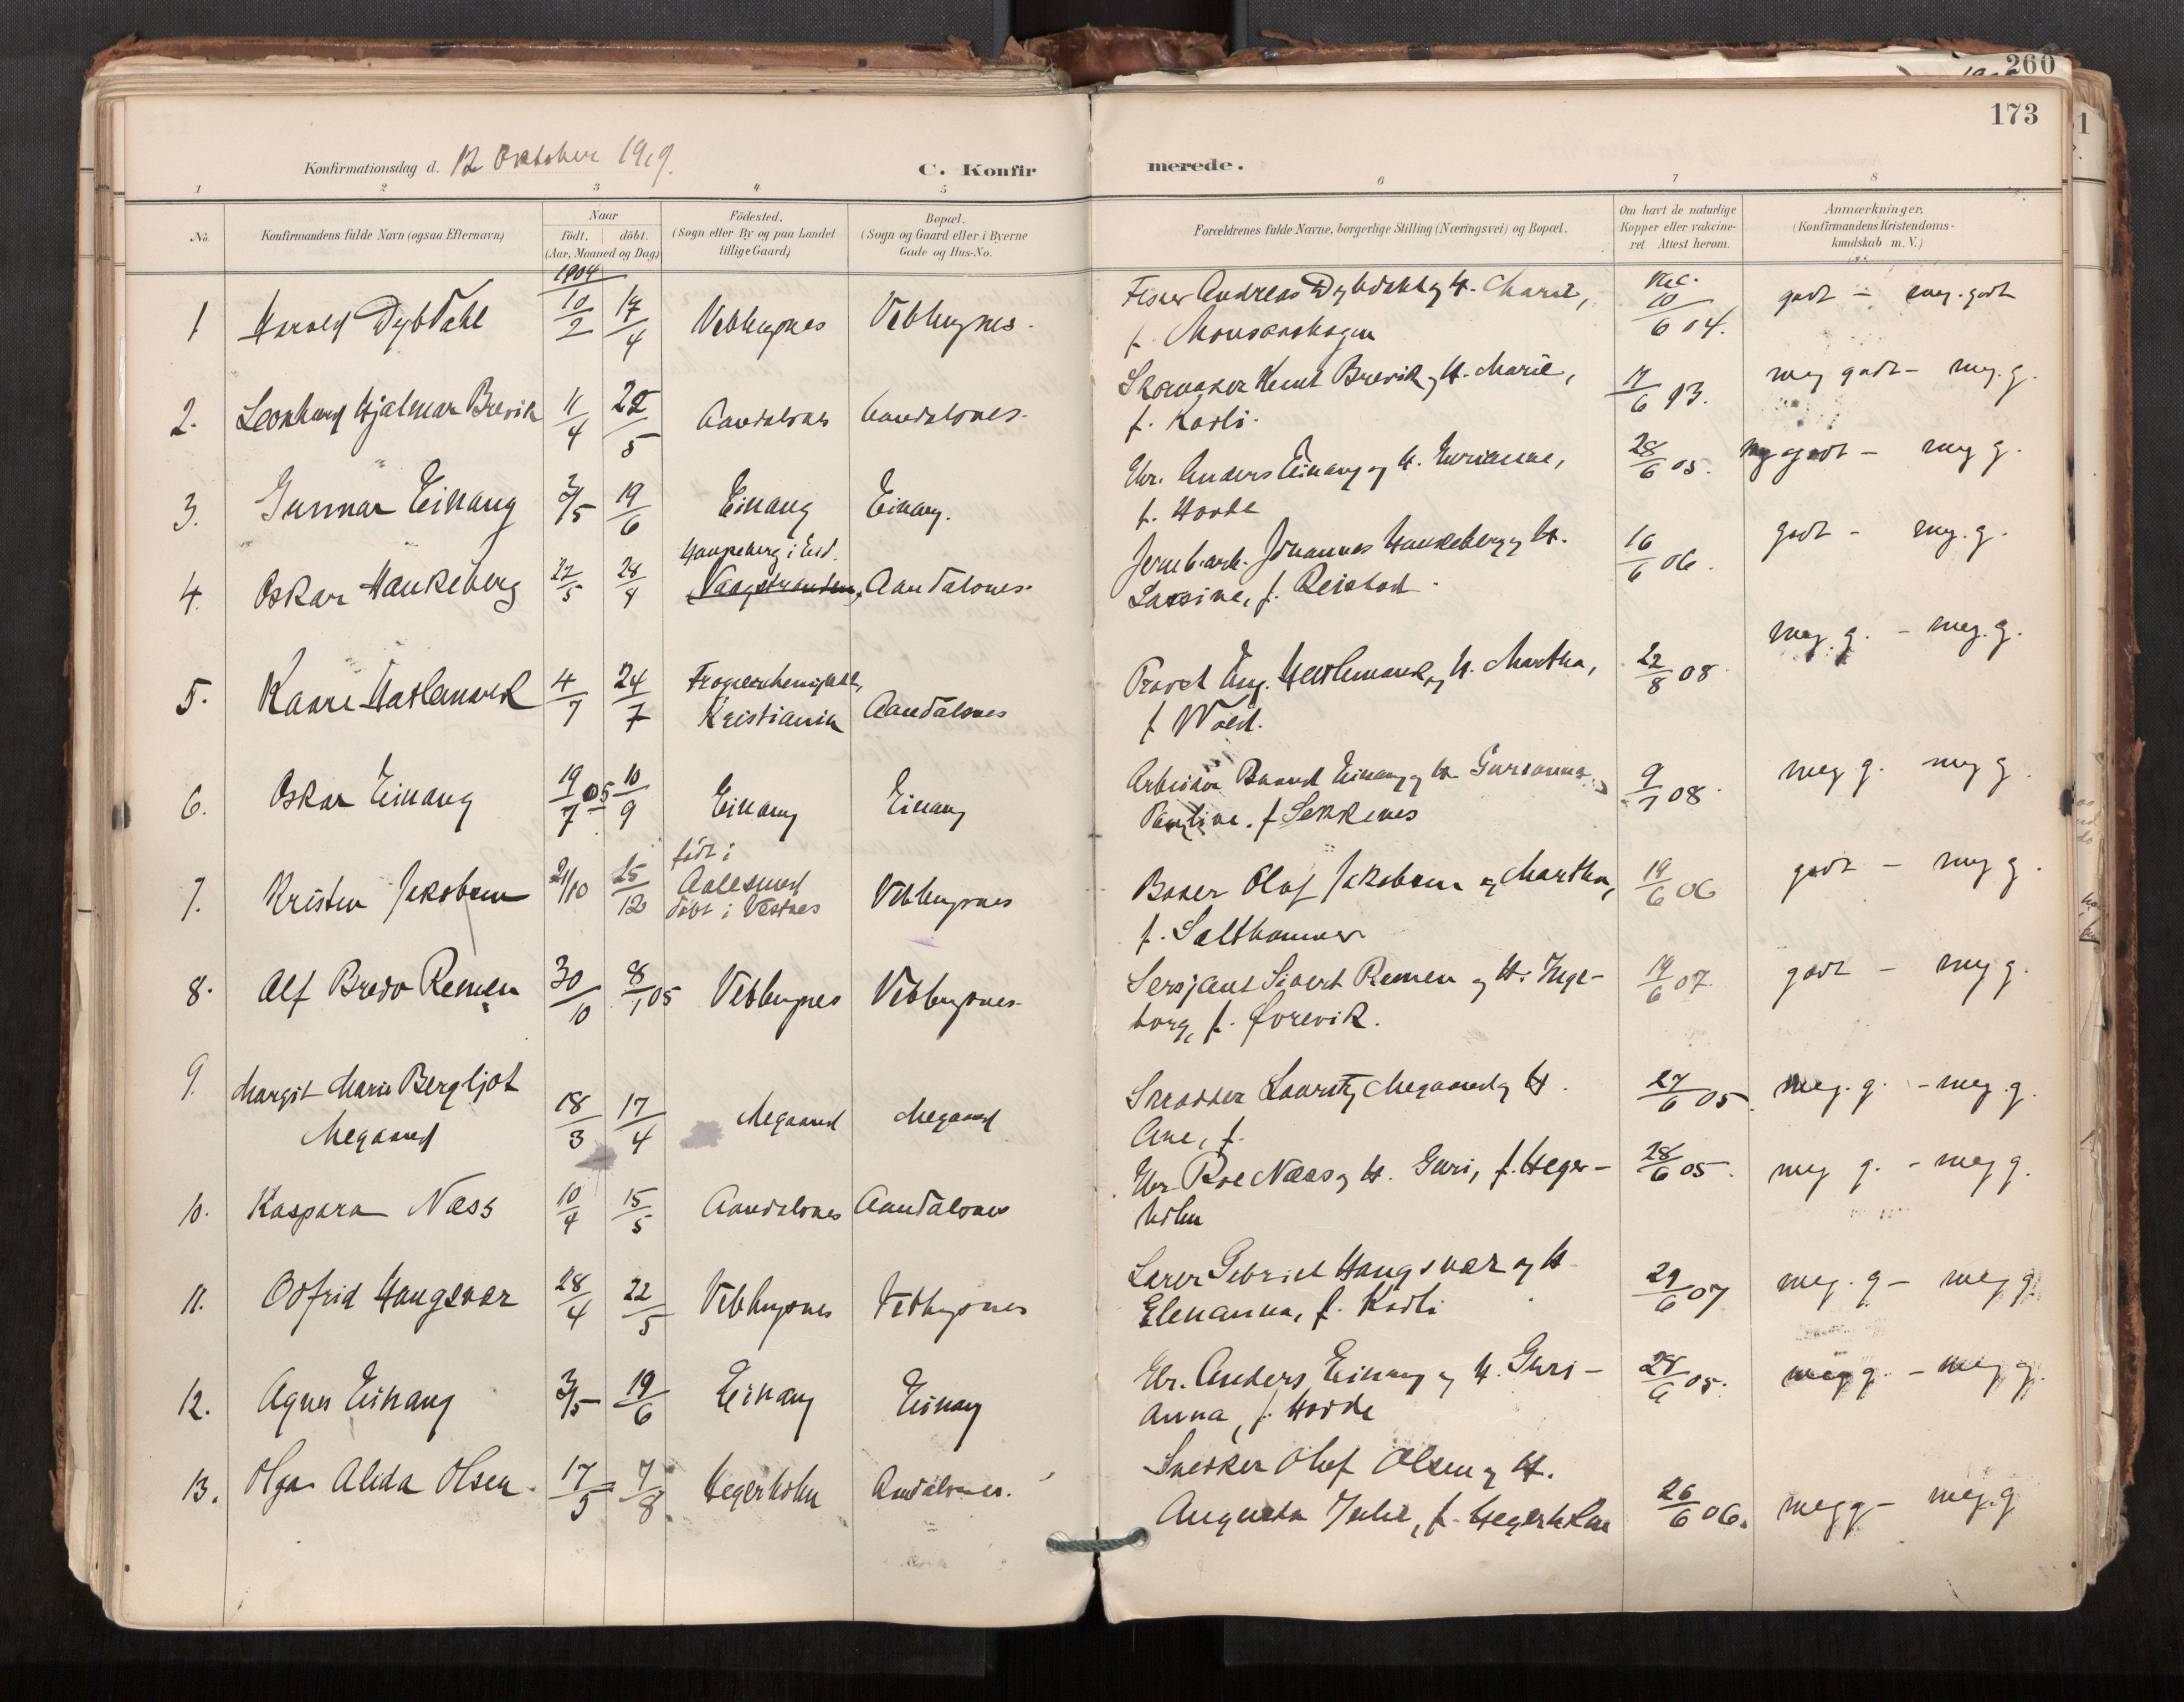 260
173
Konfirmationsdag d. 12 Oktober 1919.
C. Konfirmerede.
1 2 3 4 5 6 7 8
No.
Konfirmandens fulde Navn (ogsaa Efternavn)
Naar
födt. döbt.
(Aar, Maaned og Dag)
Födested.
(Sogn eller By og paa Landet
tillige Gaard)
Bopæl.
(Sogn og Gaard eller i Byerne
Gade og Hus-No.
Forældrenes fulde Navne, borgerlige Stilling (Næringsvei) og Bopæl.
Om havt de naturlige
Kopper eller vakcine-
ret. Attest herom.
Anmærkninger,
(Konfirmandens Kristendoms-
kundskab m. V.)
1904
1 Harald Dybdahl 10/2 17/4 Veblugnes Veblugnes. Fisker Andreas Dybdahl og H. Marie, Vac. 10/6 04. godt - meg. godt
f. Monsenshagen
2. Leonhard Hjalmar Brevik 11/4 22/5 Aandalsnes Aandalsnes. Skomaker Knut Brevik og H. Marie, 17/6 93. meg godt - meg. g.
f. Kavli.
3. Gunnar Einang 3/5 19/6 Einang Einang. Gbr. Anders Einang og H. Gurianna, 28/6 05. meg godt - meg g.
f. Hovde
4. Oskar Haukeberg 22/5 28/8 Haukeberg i Eid. Vaagstranden, Aandalsnes. Jernb.arb. Johannes Haukeberg og H. 16/6 06. godt - meg. g.
Lassine, f. Reistad.
5. Kaare Haslemark 4/7 24/7 Frogner menighet, Kristiania Aandalsnes Provst Aug. Haslemark og H. Martha, 22/8 08 meg. g. - meg. g.
f Wold.
6. Oskar Einang 19/7 05 10/9 Einang Einang Arbeider Baard Einang og H. Gurianna 9/7 08. meg g. meg g.
Pauline. f Sekkenes
7. Kristen Jakobsen 21/10 25/12 födt i Aalesund döbt i Vestnes Veblugnes Baker Olaf Jakobsen og Martha, 19/6 06 godt - meg g.
f. Salthammer
8. Alf Bredo Remen 30/10 8/1 05 Veblugnes Veblugnes. Sersjant Sivert Remen og H. Inge- 19/6 07. godt - meg g.
borg, f. Örevik.
9. Margit Marie Bergljot
Megaard 18/3 17/4 Megaard Megaard Skrædder Lauritz Megaard og H. 27/6 05. meg. g. - meg. g.
Ane, f.
10. Kaspara Næss 10/4 15/5 Aandalsnes Aandalsnes Gbr. Roe Næss og H. Guri, f. Heger- 28/6 05. meg g. - meg g.
holm
11. Odfrid Haugsvær 28/4 22/5 Veblugnes Veblugnes Lærer Gabriel Haugsvær og H. 29/6 07 meg. g - meg g.
Elenanna, f. Kavli
12. Agnes Einang 3/5 19/6 Einang Einang Gbr. Anders Einang og H. Guri- 28/6 05. meg g. - meg g.
anna, f. Hovde
13. Olga Alida Olsen. 17/5 7/8 Hegerholm Aandalsnes. Snekker Olaf Olsen og H. 26/6 06. meg g - meg. g
Augusta Julie, f. Hegerholm